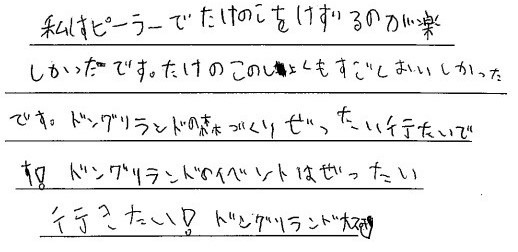 私はピーラーでたけのこをけずるのが楽
しかったです。たけのこのしょくもすごくおいしかった
です。ドングリランドの森づくりぜったい行きたいで
す!! ドングリランドのイベントはぜったい
行きたい!! ドングリランド大好き